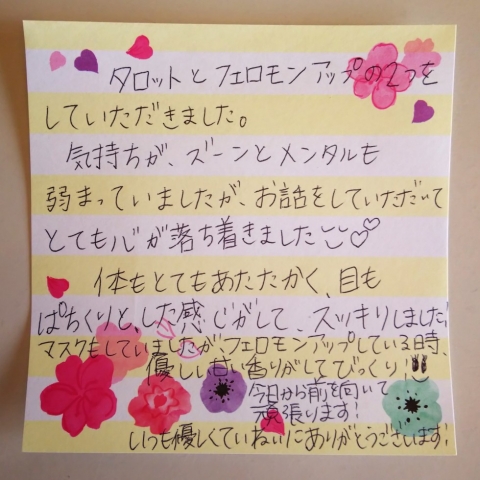 タロットとフェロモンアップの2つを
していただきました。
気持ちが、ズーンとメンタルも
弱まっていましたが、お話をしていただいて
とても心が落ち着きました
体もとてもあたたかく、目も
ぱちくりと、した感じがして、スッキリしました!
マスクもしていましたが、フェロモンアップしている時、
優しい甘い香りがしてびっくり!!
今日から前を向いて
頑張ります!
いつも優しくていねいにありがとうございます!